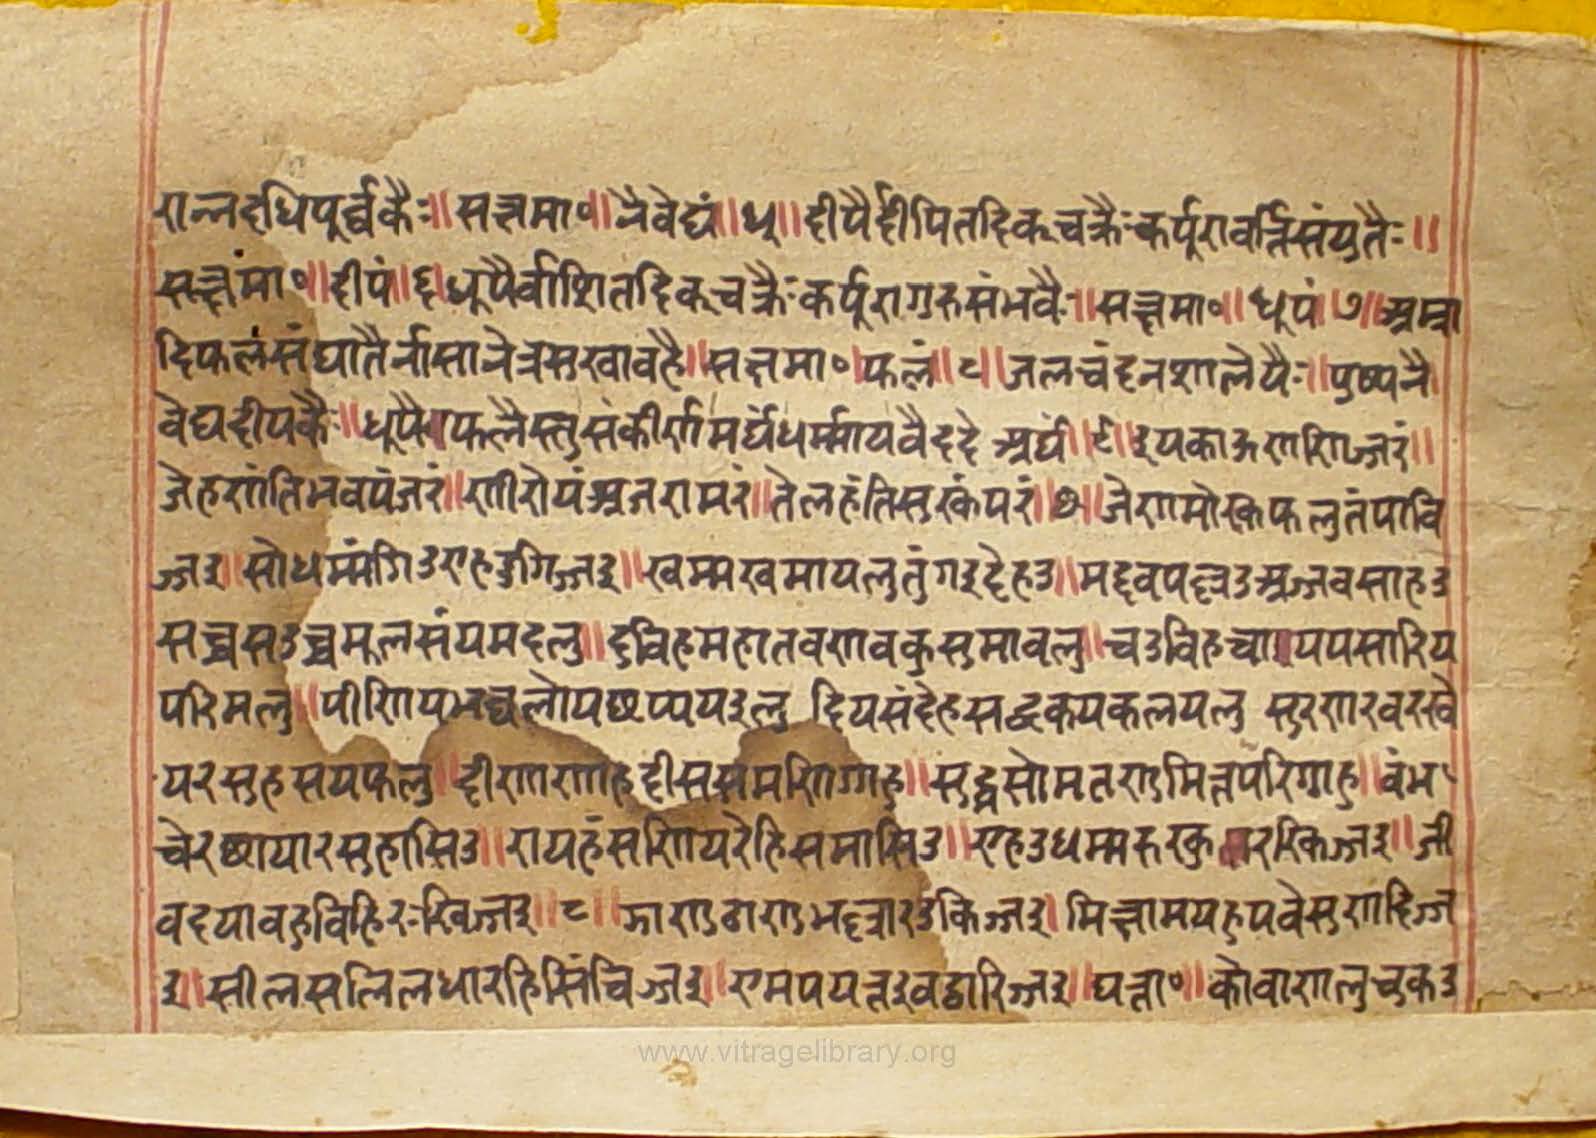 रान्नदधिपूर्व्वकैः॥ सत्क्षमा०॥ नैवेद्यं॥ ५॥ दीपैर्दीपितदिक्चक्रैः कर्पूरावर्त्तिसंयुतैः॥
सत्क्षमा०॥ दीपं॥ ६॥ धूपैर्वाशितदिक्चक्रैः कर्पूरागुरुसंभवैः॥ सत्क्षमा०॥ धूपं॥ ७॥ अम्रा
दिफलसंघातैर्नासानेत्रसुखावहै॥ सत्क्षमा०॥ फलं॥ ८॥ जलचंदनशालेयैः॥ पुष्पनै
वेद्यदीपकैः॥ धूपै फलैस्तु संकीर्णमर्घ्यं धर्म्मायवै ददे अर्घं॥ ९॥ इयकाऊणणिज्जरं॥
जेहणंतिभवपंजरं॥ णीरोयंअजरामरं॥ तेलहंतिसुरकंपरं॥ जेणमोरकफलुतंपावि
ज्जइ॥ सोधम्मंगिउएहउगिज्जइ॥ खम्मखमायलुतुंगइदेहउ॥ मद्दवपल्लउअज्जवसाहउ
सच्चसउच्चमूलसंयमदलु॥ दुविहमहातवणवकुसुमावलु॥ चउविहच्चायपसारिय
परिमलु॥ पीणियभव्वलोयछप्पयइलु दियसंदेहसद्दकयकलयलु सुरणरवरखे
यरसुहसयफलु॥ दीणाणाहदीससमणिग्गहु॥ सुद्धसोमतणुमित्तपरिगहु॥ वंभ
चेरछायारसुहासिउ॥ रायहंसणियरेहिसमासिउ॥ एहउधम्मरुरकु ररकिज्जइ॥ जी
वदयावहुविहिरखिज्जइ॥ ८॥ झाणुठाणुभल्लारउकिज्जइ॥ मिच्छामयहुपवेसुणदिज्ज
इ॥ सीलसलिलधारहिसिंचिज्जइ॥ एमपयत्तइवद्धारिज्जइ॥ घत्ता०॥ कोवाणलुचुकउ
www.vitragelibrary.org